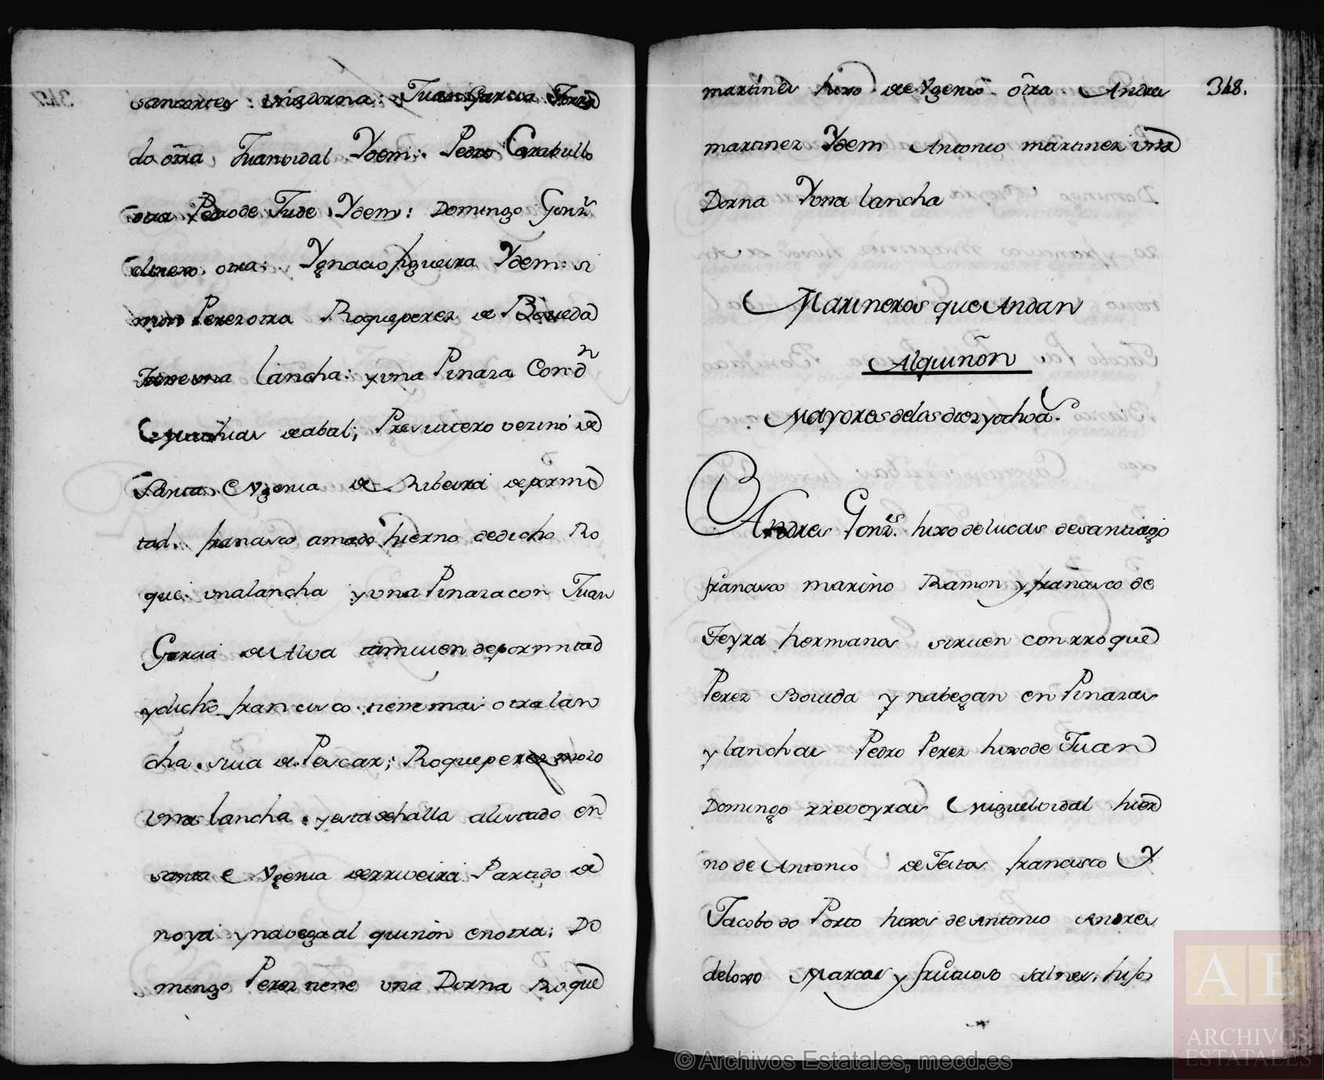 una dorna: Juan Garcia
do otra, Juan vidal Ydem: Pedro Caraballo
otra Pedro de Tude Ydem: Domingo Gonz
otra: Ygnacio figueira Ydem: si
mon Perez otra Roque perez de Boueda
una lancha: y una Pinaza Con Dn
de abal; Presuitero vezino de
Santa eVgenia de Ribeira de por mi
tad. francisco amado hierno de dicho Ro
que: una lancha y una Pinaza con Juan
Garcia de Alva tamuien de por mitad
y dicho francisco tiene mas otra lan
cha suia de Pescar; Roque perez mozo
una lancha y esta se halla alistado en
santa eVgenia de rriveira Partido de
noya y navega al quiñon en otra; Do
mingo Perez tiene una Dorna Roque
martinez hixo de eVgenio otra Andres
martinez Ydem Antonio martinez una
Dorna Y otra lancha
348.
Marineros que Andan
Alquiñon
Mayores de los diez y ocho as.
Andres Gonzs. hixo de lucas de santiago
franasco mariño Ramon y franasco de
Feyra hermanos siruen con rroque
Perez Boueda y nabegan en Pinazas
y lanchas Pedro Perez hixo de Juan
Domingo rrevoyras Miguel vidal hier
no de Antonio de Teira francisco Y
Jacobo do Porto hixos de Antonio Andres
deloxo Marcos y franasco salnes, hijos
© Archivos Estatales, mecd.es
AE
ARCHIVOS
ESTATALES